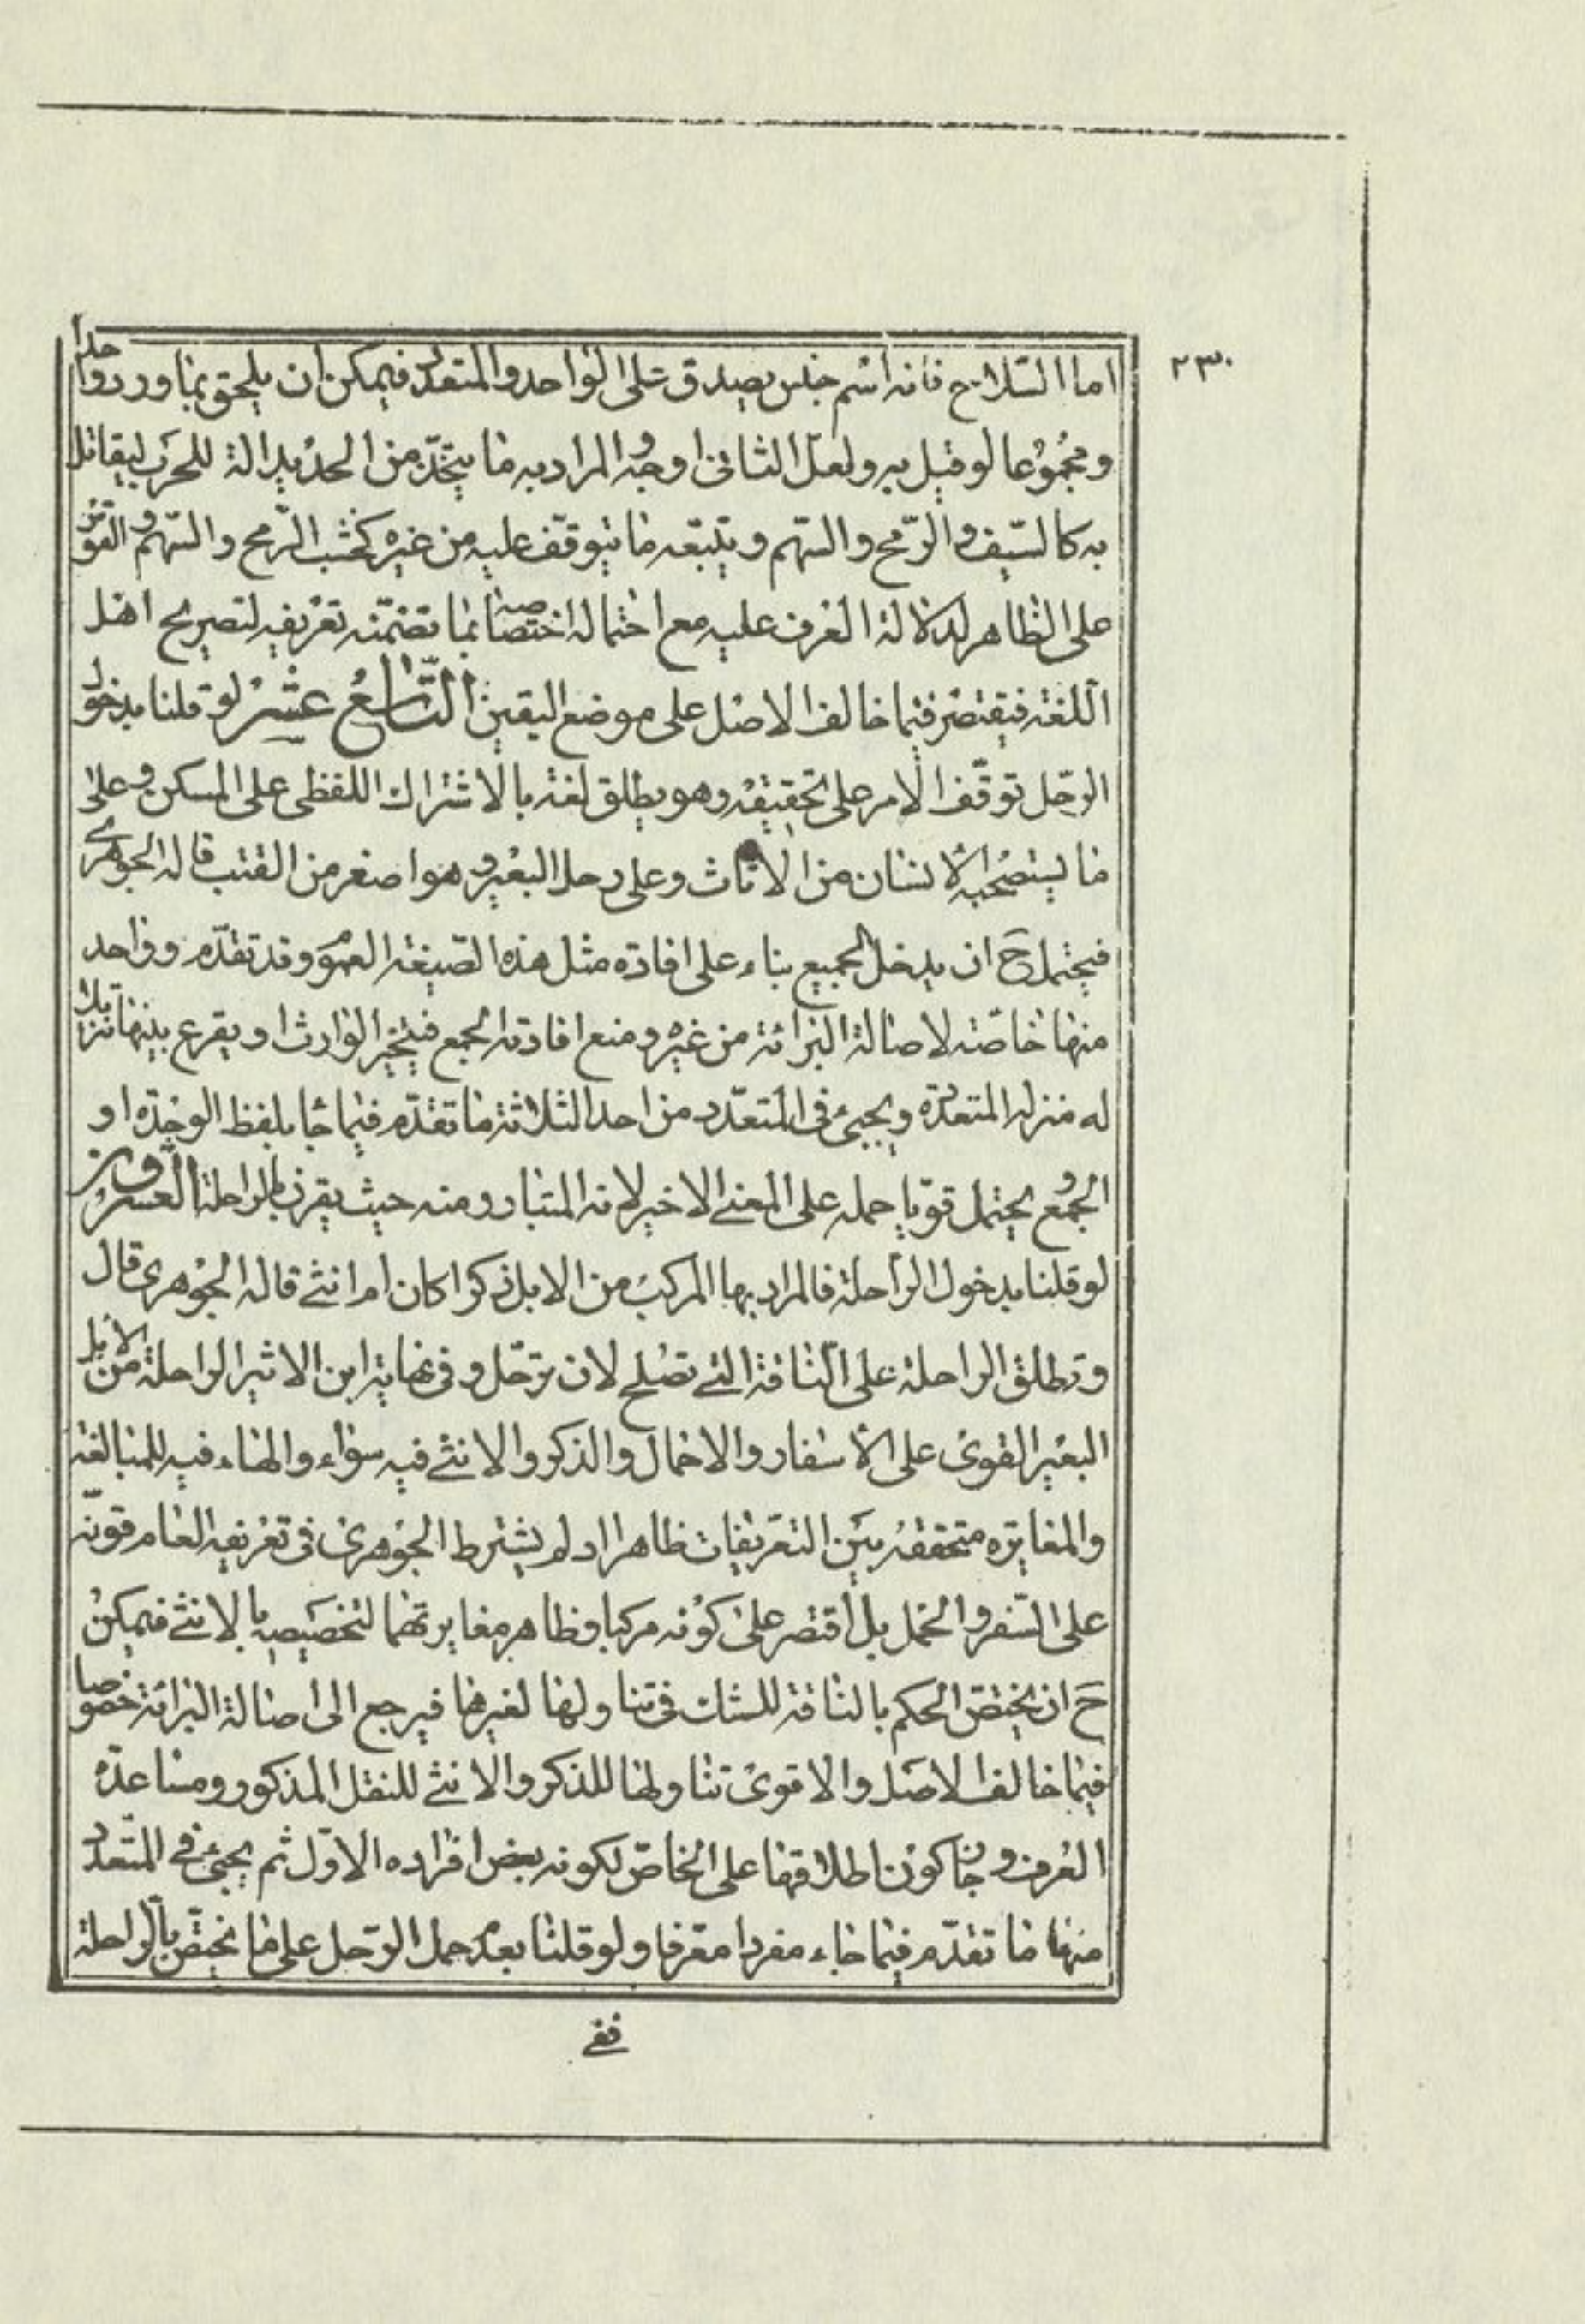 ٢٣٠
اما السلاح فانه اسم جنس يصدق على الواحد والمتعدد فيمكن ان يلحق بما ورد واحدا
ومجموعا لو قيل به ولعل الثانى اوجه والمراد به ما يتخذ من الحديد الة للحرب ليقاتل
به كالسيف والرمح والسهم ويتبعه ما يتوقف عليه من غيره كخشب الرمح والسهم والقوس
على الظاهر لدلالة العرف عليه مع احتمال اختصاصه بما تضمنه تعريفه لتصريح اهل
اللغة فيقتصر فيما خالف الاصل على موضع اليقين التاسع عشر لو قلنا بدخول
الرحل توقف الامر على تحقيقه وهو يطلق لغة بالاشتراك اللفظى على المسكن وعلى
ما يستصحبه الانسان من الاثاث وعلى رحل البعير وهو اصغر من القتب قاله الجوهرى
فيحتمل ح ان يدخل الجميع بناء على افادة مثل هذه الصيغة العموم وقد تقدم وواحد
منها خاصة لاصالة البرائة من غيره ومنع افادته الجمع فيتخير الوارث او يقرع بينها تنزيلا
له منزلة المتعددة ويجئ فى المتعدد من احد الثلاثة ما تقدم فيما جا بلفظ الوحدة او
الجمع ويحتمل قويا حمله على المعنى الاخير لانه المتبادر منه حيث يقرن بالراحلة العشرون
لو قلنا بدخول الراحلة فالمراد بها المركب من الابل ذكرا كان ام انثى قاله الجوهرى قال
وتطلق الراحلة على الناقة التى تصلح لان ترحل وفى نهاية ابن الاثير الراحلة من الابل
البعير القوى على الاسفار والاحمال والذكر والانثى فيه سواء والهاء فيه للمبالغة
والمغايرة متحققة بين التعريفات ظاهرا اد لم يشترط الجوهرى فى تعريفه العام قوته
على السفر والحمل بل اقتصر على كونه مركبا وظاهر مغايرتهما لتخصيصه بالانثى فيمكن
ح ان يختص الحكم بالناقة للشك فى تناولها لغيرها فيرجع الى اصالة البرائة خصوصا
فيما خالف الاصل والاقوى تناولها للذكر والانثى للنقل المذكور ومساعدة
العرف وجاز كون اطلاقها على الخاص لكونه بعض افراده الاول ثم يجئ فى المتعدد
منها ما تقدم فيما جاء مفردا معرفا ولو قلنا بعدم حمل الرحل على ما يختص بالراحلة
ففى